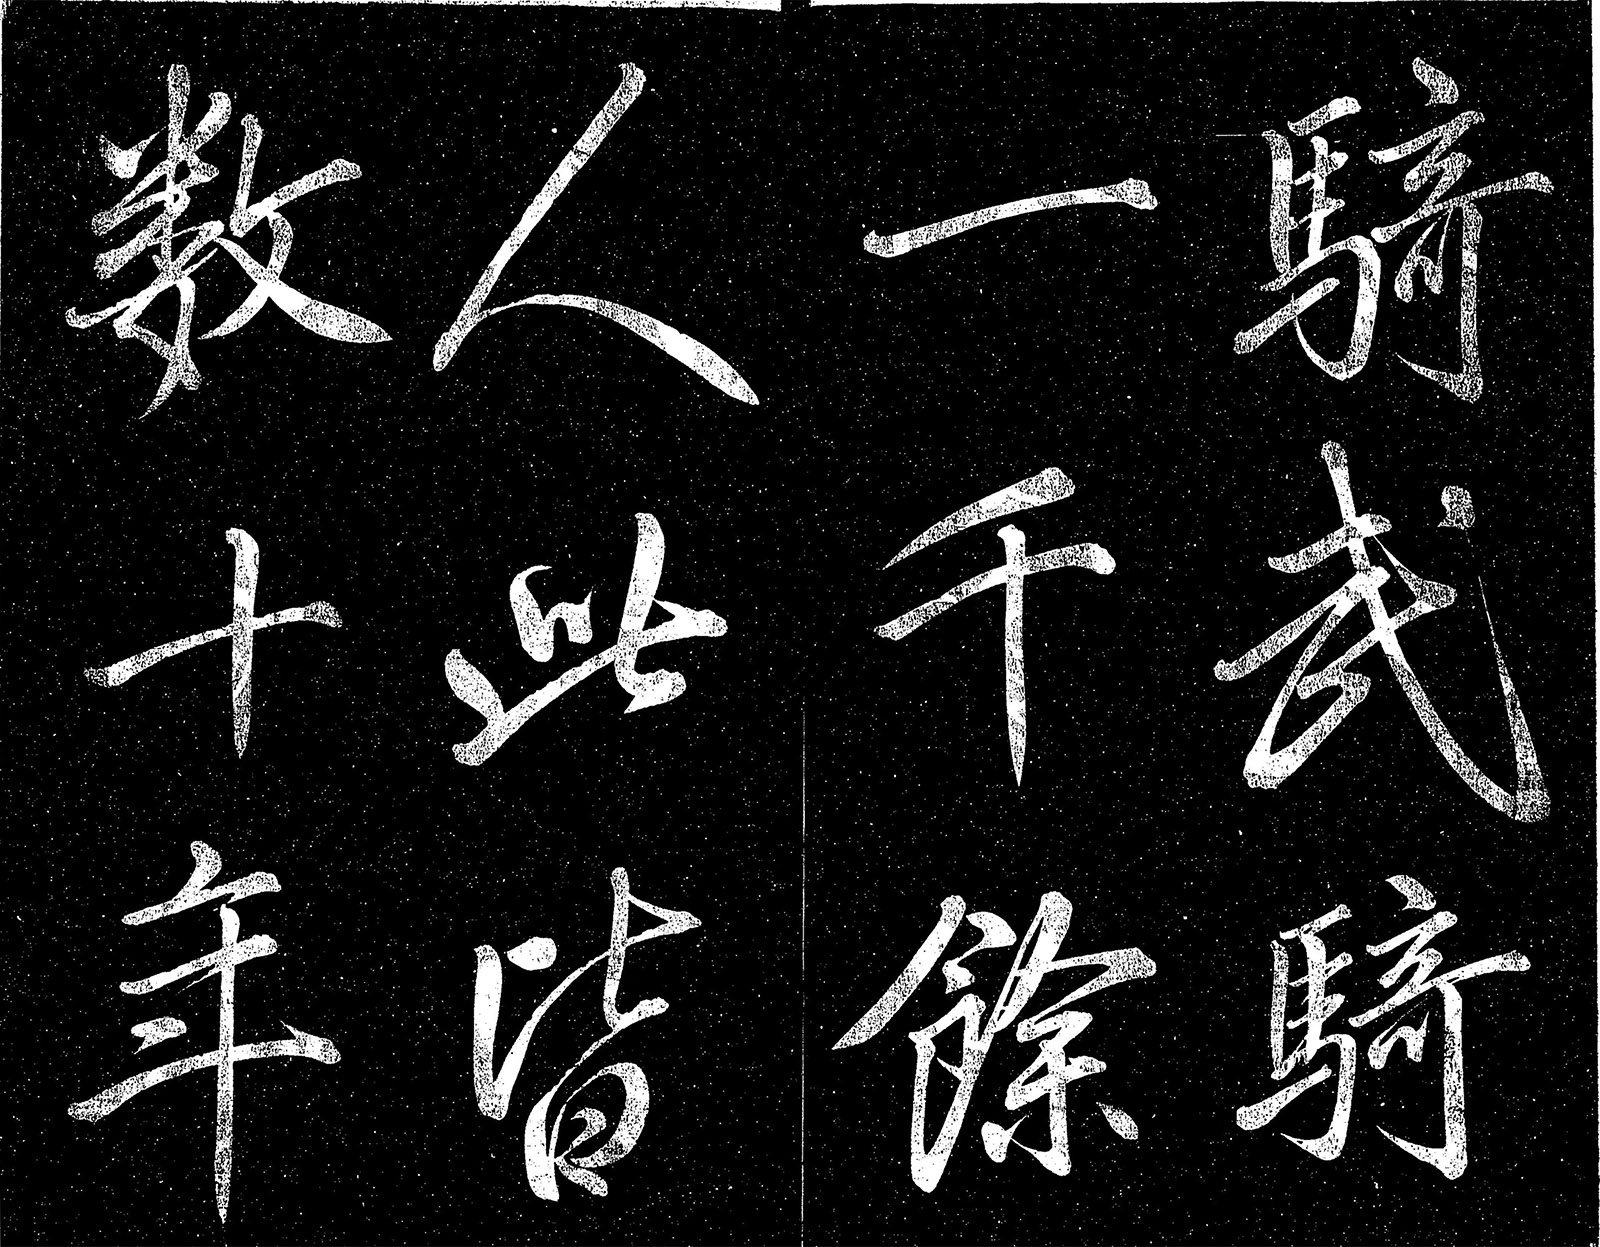 騎武騎
一千餘
人此皆
數十年